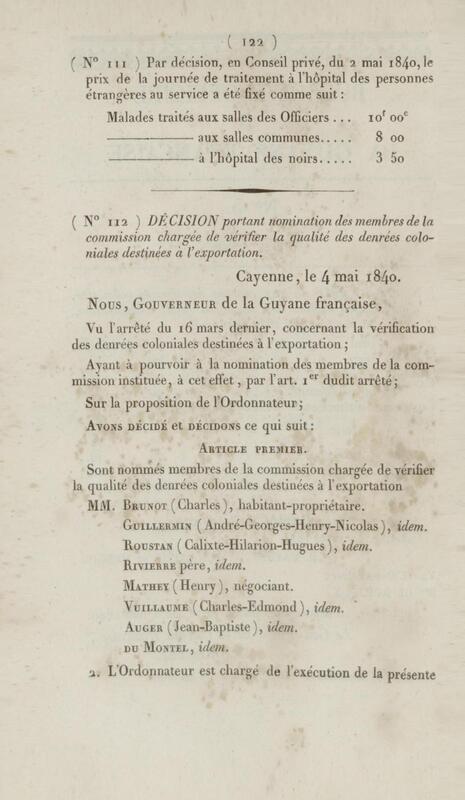 ( 122 )
( N° 111 ) Par décision, en Conseil privé, du 2 mai 1840, le
prix de la journée de traitement à l'hôpital des personnes
étrangères au service a été fixé comme suit :
Malades traités aux salles des Officiers ... 10f 00c
——— aux salles communes..... 8 00
——— à l'hôpital des noirs..... 3 50
( N° 112 ) DÉCISION portant nomination des membres de la
commission chargée de vérifier la qualité des denrées colo-
niales destinées à l'exportation.
Cayenne, le 4 mai 1840.
Nous, Gouverneur de la Guyane française,
Vu l'arrêté du 16 mars dernier, concernant la vérification
des denrées coloniales destinées à l'exportation ;
Ayant à pourvoir à la nomination des membres de la com-
mission instituée, à cet effet, par l'art. 1er dudit arrêté ;
Sur la proposition de l'Ordonnateur ;
Avons décidé et décidons ce qui suit :
Article premier.
Sont nommés membres de la commission chargée de vérifier
la qualité des denrées coloniales destinées à l'exportation
MM. Brunot (Charles), habitant-propriétaire.
Guillermin (André-Georges-Henry-Nicolas), idem.
Roustan (Calixte-Hilarion-Hugues), idem.
Rivierre père, idem.
Mathey (Henry), négociant.
Vuillaume (Charles-Edmond), idem.
Auger (Jean-Baptiste), idem.
du Montel, idem.
2. L'Ordonnateur est chargé de l'exécution de la présente